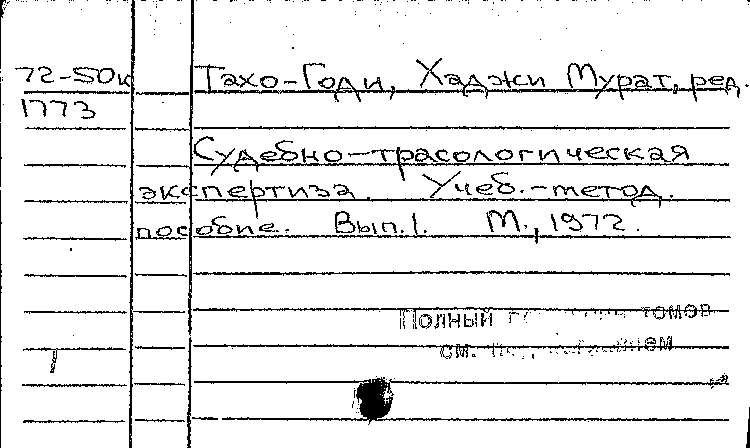 72-50к Тахо-Годи, Хаджи Мурат, ред.
1773
Судебно-трасологическая
экспертиза. Учеб.-метод.
пособие. Вып.1. М., 1972.
Полный томов
см.
1